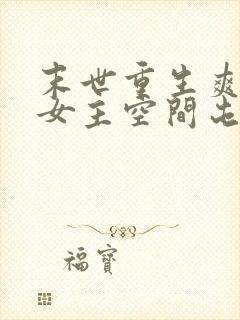 末世重生爽
女主空間屯
福寶